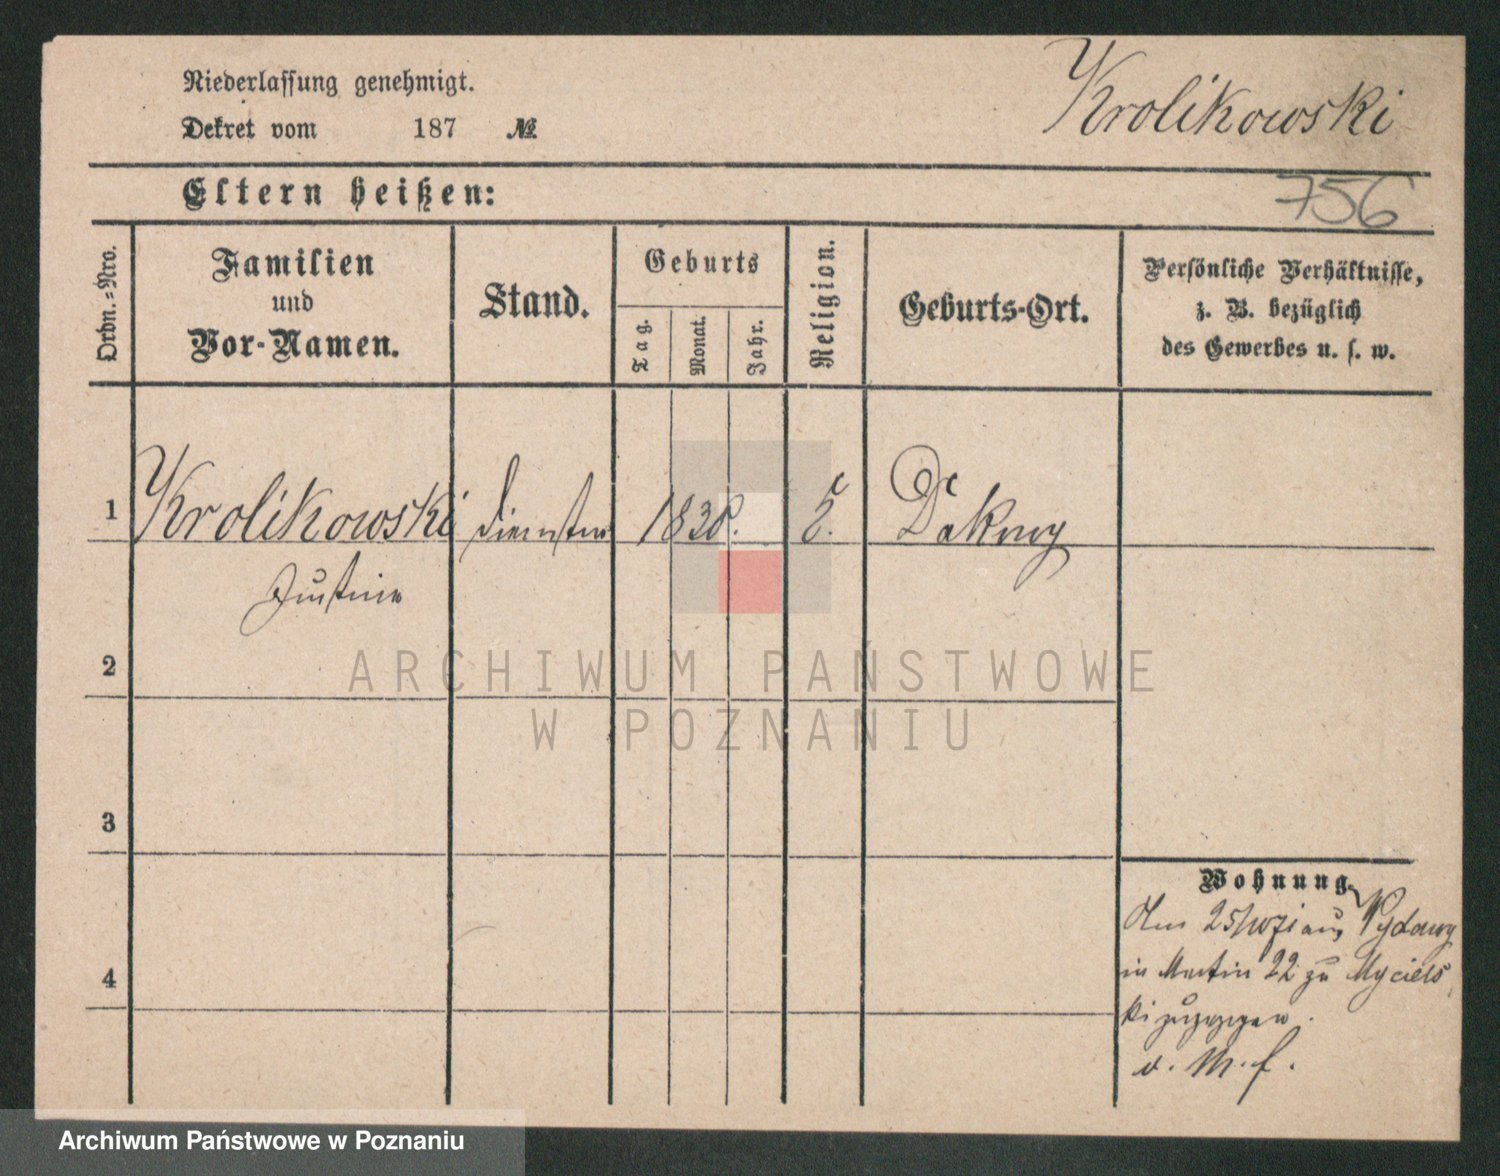 Niederlassung genehmigt.
Dekret vom 187 №
Krolikowski
Eltern heißen:
756
Ordn.=Nro.
Familien
und
Vor-Namen.
Stand.
Geburts
Tag.
Monat.
Jahr.
Religion.
Geburts-Ort.
Persönliche Verhältnisse,
z. B. bezüglich
des Gewerbes u. s. w.
1 Krolikowski 1838.
Justine
2
3
Wohnung.
in Martin 22 zu Myciels
4
ki zugezogen.
ARCHIWUM PAŃSTWOWE
W POZNANIU
Archiwum Państwowe w Poznaniu